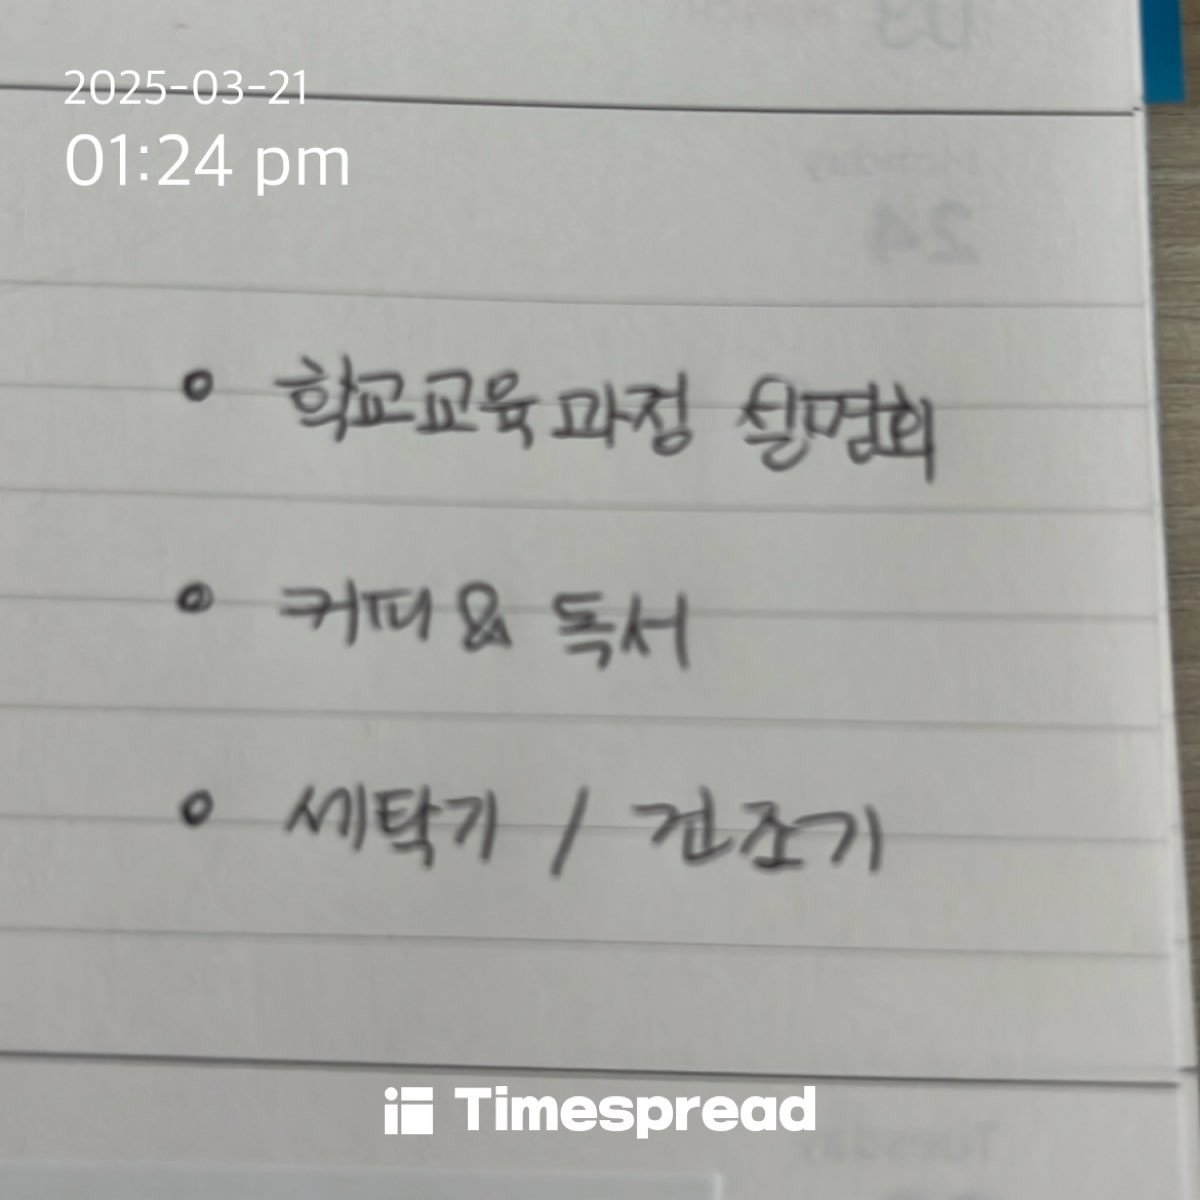 2025-03-21
01:24 pm
학교교육과정 설명회
커피 & 독서
세탁기 / 건조기
Timespread